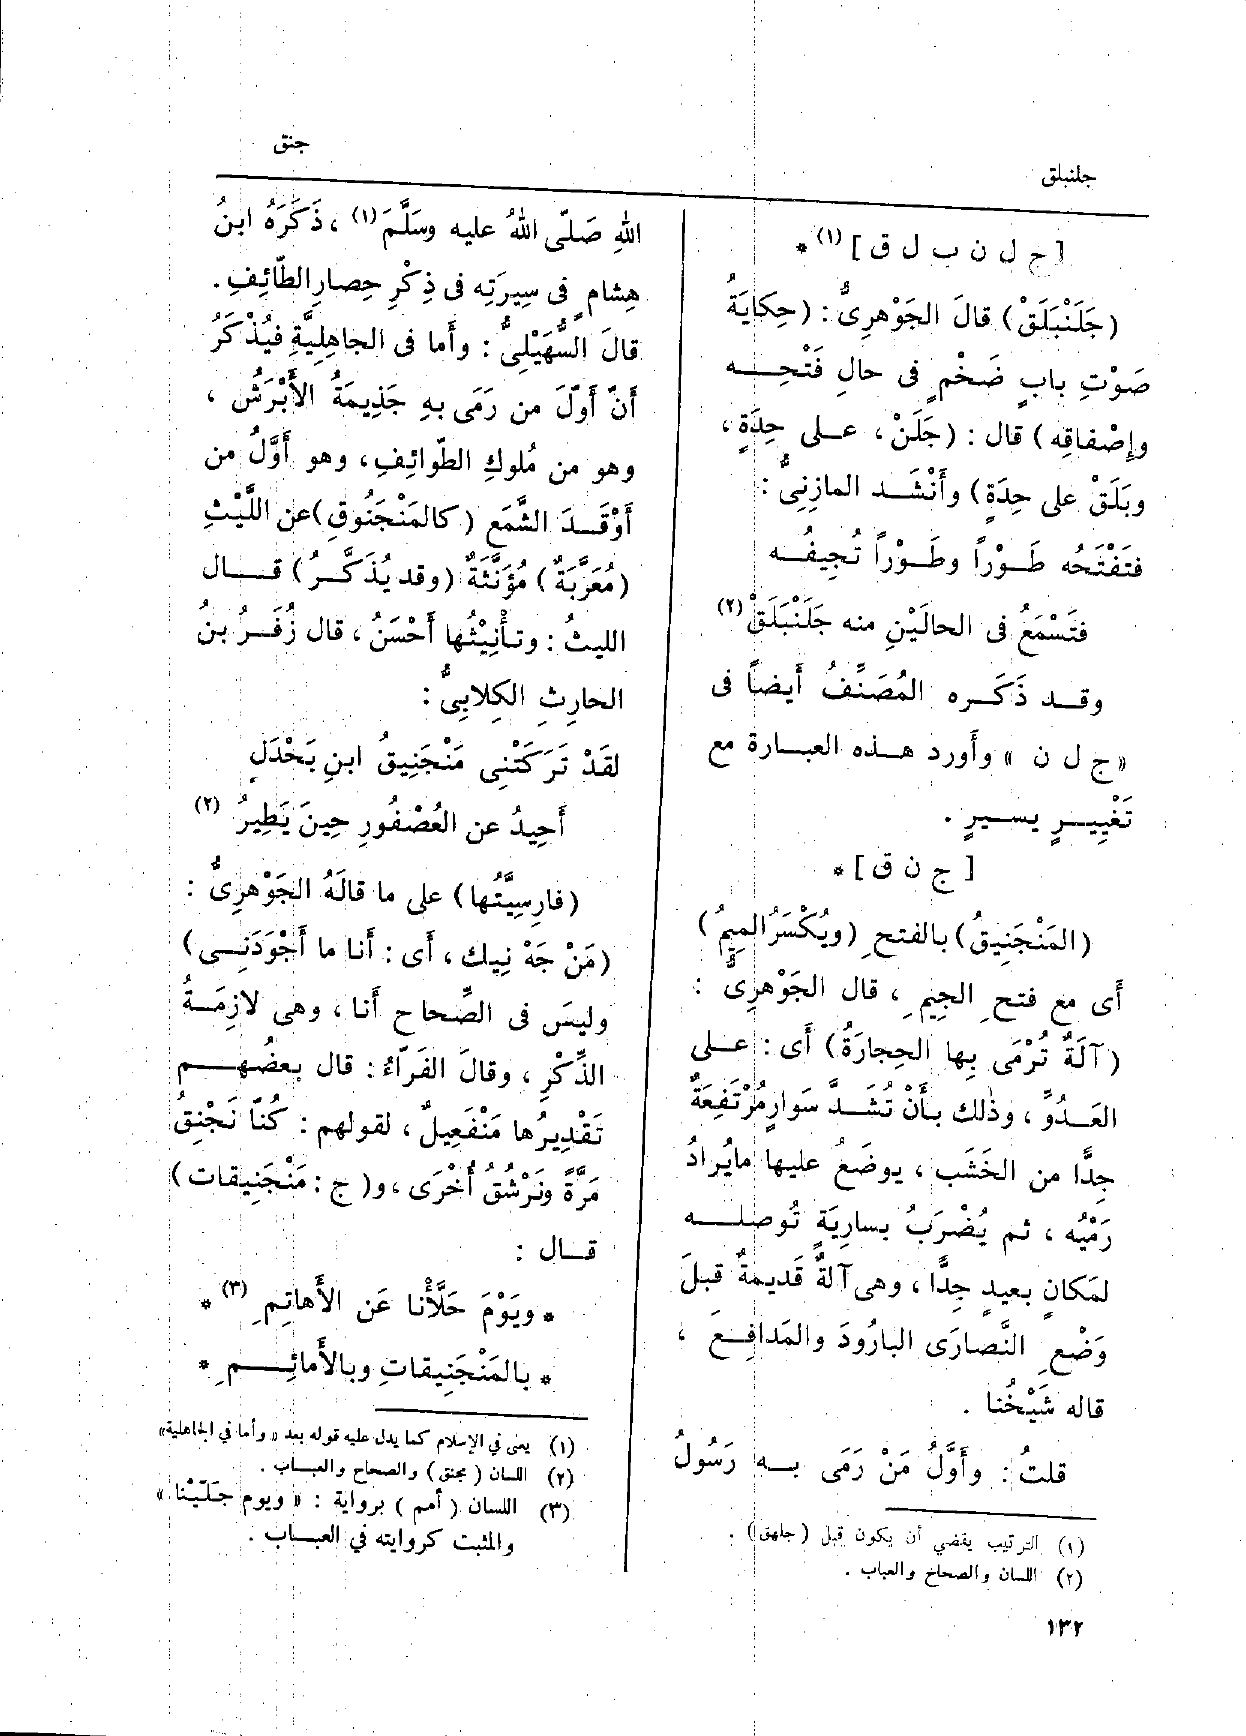 جلنبلق
جنق
[ ج ل ن ب ل ق ] (١) *
(جَلَنْبَلَقْ) قالَ الجَوْهرِىُّ : (حِكايَةُ
صَوْتِ بابٍ ضَخْمٍ فى حالِ فَتْحِـــه
وإِصْفاقِه) قال : (جَلَنْ ، عـلى حِدَةٍ ،
وبَلَقْ على حِدَةٍ) وأَنْشَـد المازِنِىُّ :
فتَفْتَحُه طَـوْراً وطَـوْراً تُجِيفُـه
فتَسْمَعُ فى الحالَيْنِ منه جَلَنْبَلَقْ (٢)
وقـد ذَكَـره المُصَنِّفُ أَيضاً فى
«ج ل ن » وأَورد هـذه العبـارة مع
تَغْيِيـرٍ يسـيرٍ .
[ ج ن ق ] *
(المَنْجَنِيقُ) بالفتحِ (ويُكْسَرُ المِيمُ)
أى مع فتحِ الجِيمِ ، قال الجَوْهرِىُّ :
(آلَةٌ تُرْمَى بها الحِجارَةُ) أَى : عـلى
العَـدُوِّ ، وذٰلك بـأَنْ تُشَـدَّ سَوارٍ مُرْتَفِعَةٌ
جِدًّا من الخَشَبِ ، يوضَعُ عليها مايُرادُ
رَمْيُه ، ثم يُضْرَبُ بسارِيَةٍ تُوصلـــه
لمَكانٍ بعيدٍ جِدًّا ، وهى آلةٌ قَديمةٌ قبلَ
وَضْعِ النَّصارَى البارُودَ والمَدافِـعَ ،
قاله شَيْخُنا .
قلتُ : وأَوَّلُ مَنْ رَمَى بـه رَسُولُ
(١) الترتيب يقضي أن يكون قبل (جلهق) .
(٢) اللسان والصحاح والعباب .
اللهِ صَلّى اللهُ عليه وسَلَّمَ (١) ، ذَكَرَهُ ابنُ
هِشامٍ فى سِيرَتِه فى ذِكْرِ حِصارِ الطّائِفِ .
قالَ السُّهَيْلِىُّ : وأَما فى الجاهِلِيَّةِ فيُذْكَرُ
أَنّ أَوّلَ من رَمَى بهِ جَذِيمَةُ الأَبْرَشُ ،
وهو من مُلوكِ الطّوائِفِ ، وهو أَوَّلُ من
أَوْقَـدَ الشَّمَع (كالمَنْجَنُوقِ) عن اللَّيْثِ
(مُعَرَّبَةٌ) مُؤَنَّثةٌ (وقد يُذَكَّـرُ) قـــال
الليثُ : وتـأْنِيْثُها أَحْسَنُ ، قال زُفَـرُ بنُ
الحارِثِ الكِلابِىُّ :
لقَدْ تَرَكَتْنِى مَنْجَنِيقُ ابنِ بَحْدَلٍ
أَحِيدُ عن العُصْفُورِ حِينَ يَطِيرُ (٢)
(فارِسِيَّتُها) على ما قالَهُ الجَوْهرِىُّ :
(مَنْ جَهْ نِيك ، أَى : أَنا ما أَجْوَدَنِـى)
وليسَ فى الصِّحاح أَنا ، وهى لازِمَـةُ
الذِّكْرِ ، وقالَ الفَرّاءُ : قال بعضُهــم
تَقْدِيرُها مَنْفَعِيلٌ ، لقولهم : كُنّا نَجْنِقُ
مَرَّةً ونَرْشُقُ أُخْرَى ، و( ج : مَنْجَنِيقات)
قـال :
* ويَوْمَ حَلَّأْنا عَن الأَهاتِمِ (٣) *
* بالمَنْجَنِيقاتِ وبالأَمائِــمِ *
(١) يعنى في الإسلام كما يدل عليه قوله بعد «وأما في الجاهلية»
(٢) اللسان (مجنق) والصحاح والعبـاب .
(٣) اللسان (أمم) برواية : « ويوم جَلَّيْنا »
والمثبت كروايته في العبـاب .
١٣٢